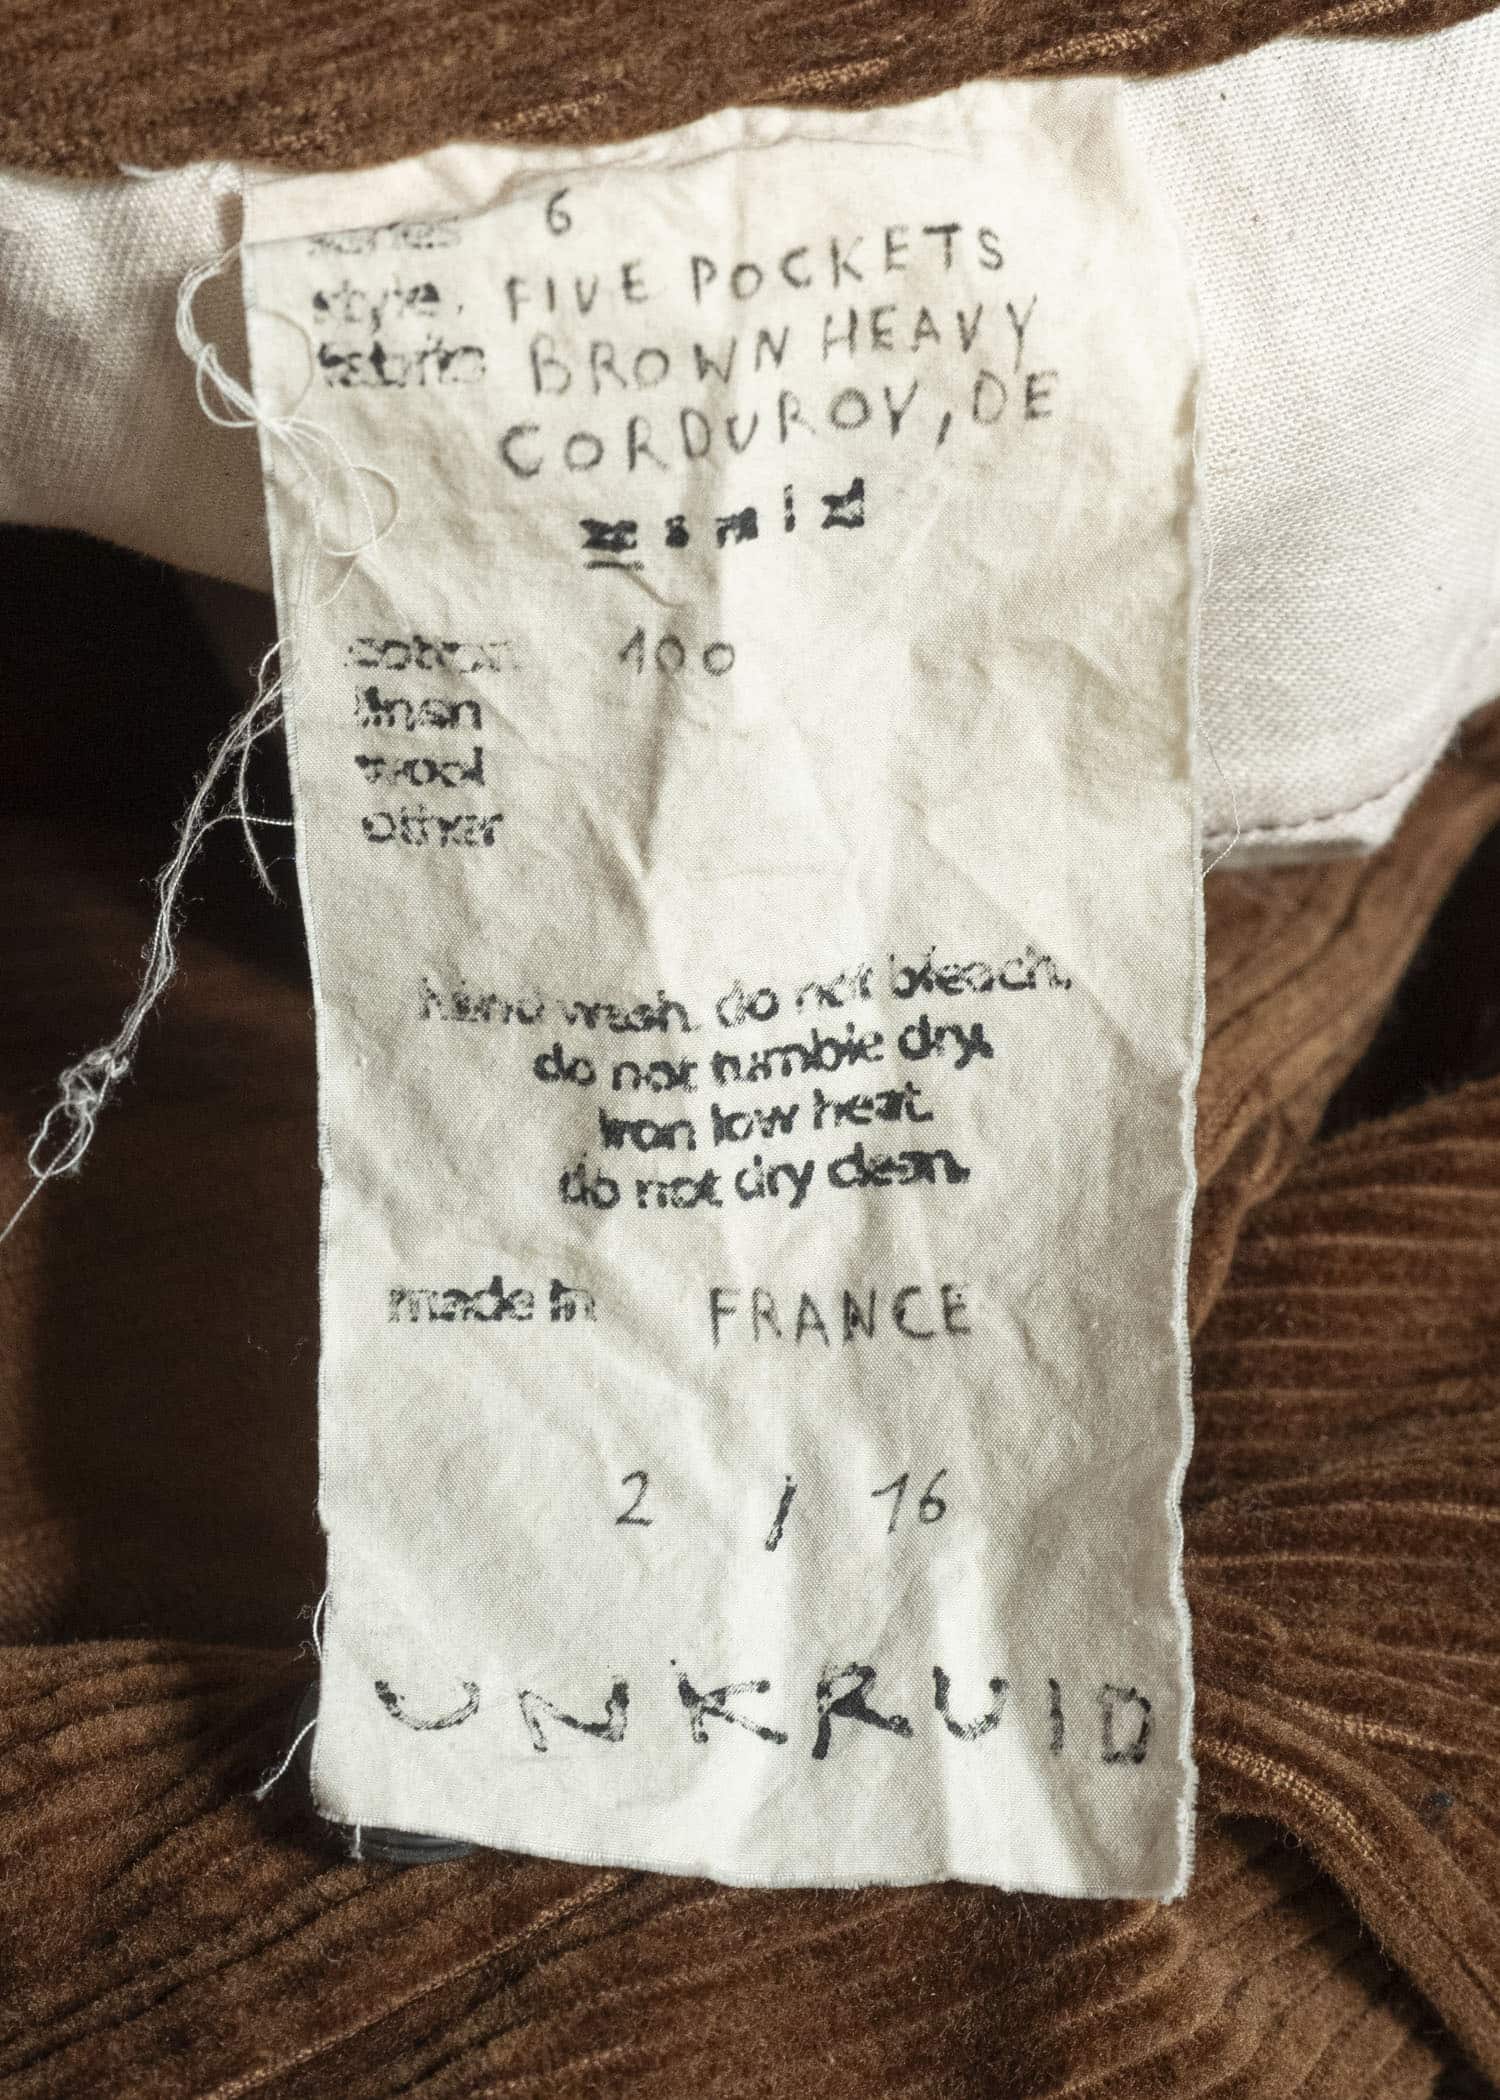 series 6
style. FIVE POCKETS
fabric BROWN HEAVY
CORDUROY, DE
xs s m l xl
cotton 100
linen
wool
other
hand wash. do not bleach.
do not tumble dry.
iron low heat.
do not dry clean.
made in FRANCE
2 / 16
UNKRUID